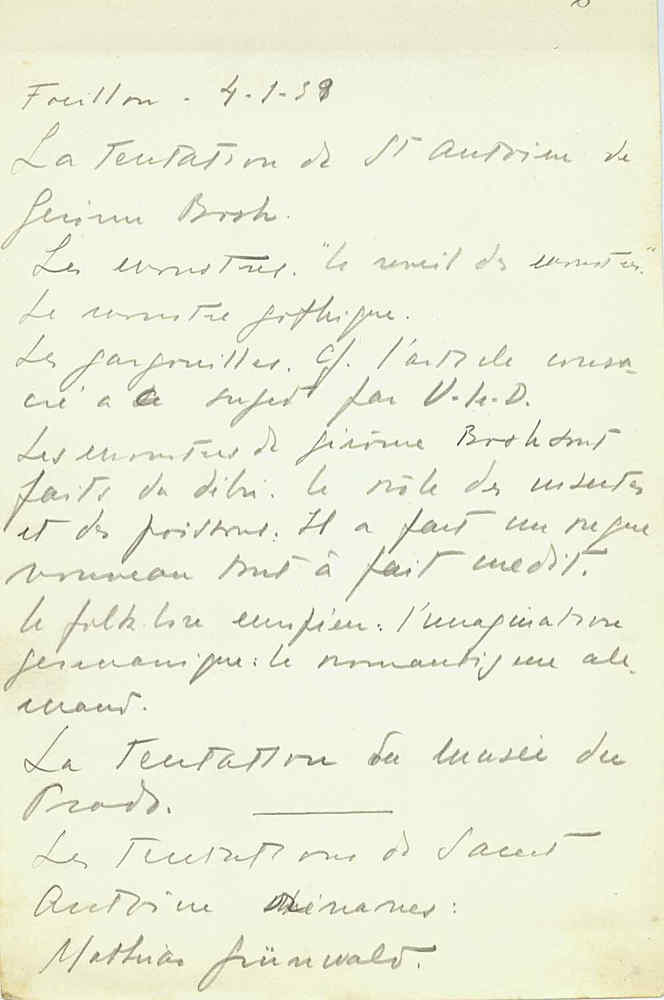 Fouillon - 4-1-38
La Tentation de St Antoine de
Gerome Bosh.
Les monstres. "le reveil des monstres."
Le monstre gothique.
Les gargouilles. Cf. l'article consa-
cré a ce sujet par V-l-D.
Les monstres de Girôme Bosh sont
faits de débri. le rôle des insectes
et des poissons. Il a fait un regne
nouveau tout à fait inedit.
le folklore européen: l'imagination
germanique: le romantisme ale-
mand.
La Tentation du Musée du
Prado.
Les Tentations de Saint
Antoine rhénanes:
Mathias Grünwald.